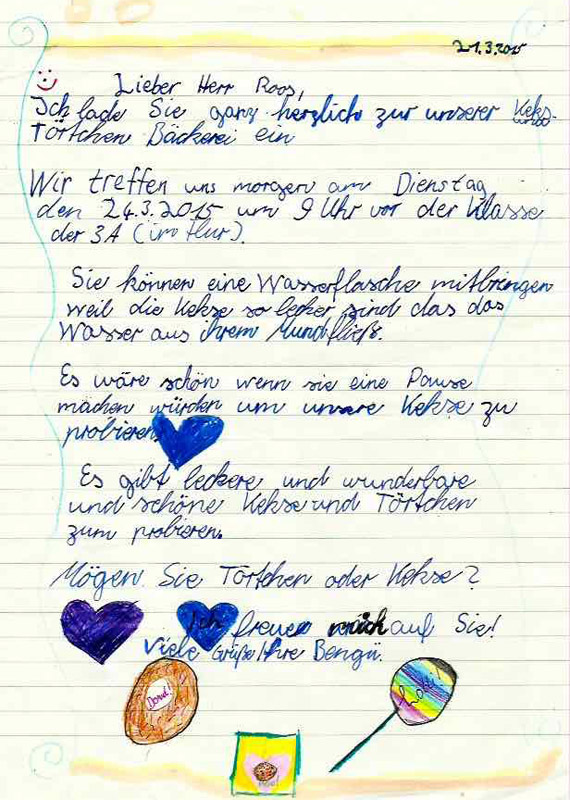 21.3.2015
Lieber Herr Roos,
Ich lade Sie ganz herzlich zur unserer Keks-
Törtchen Bäckerei ein
Wir treffen uns morgen am Dienstag
den 24.3.2015 um 9 Uhr vor der Klasse
der 3A (im flur).
Sie können eine Wasserflasche mitbringen
weil die Kekse so lecker sind das das
Wasser aus ihrem Mund fließ.
Es wäre schön wenn sie eine Pause
machen würden um unsere Kekse zu
probieren.
Es gibt leckere und wunderbare
und schöne Kekse und Törtchen
zum probieren.
Mögen Sie Törtchen oder Kekse?
Ich freue mich auf Sie!
Viele Grüße Ihre Bengü.